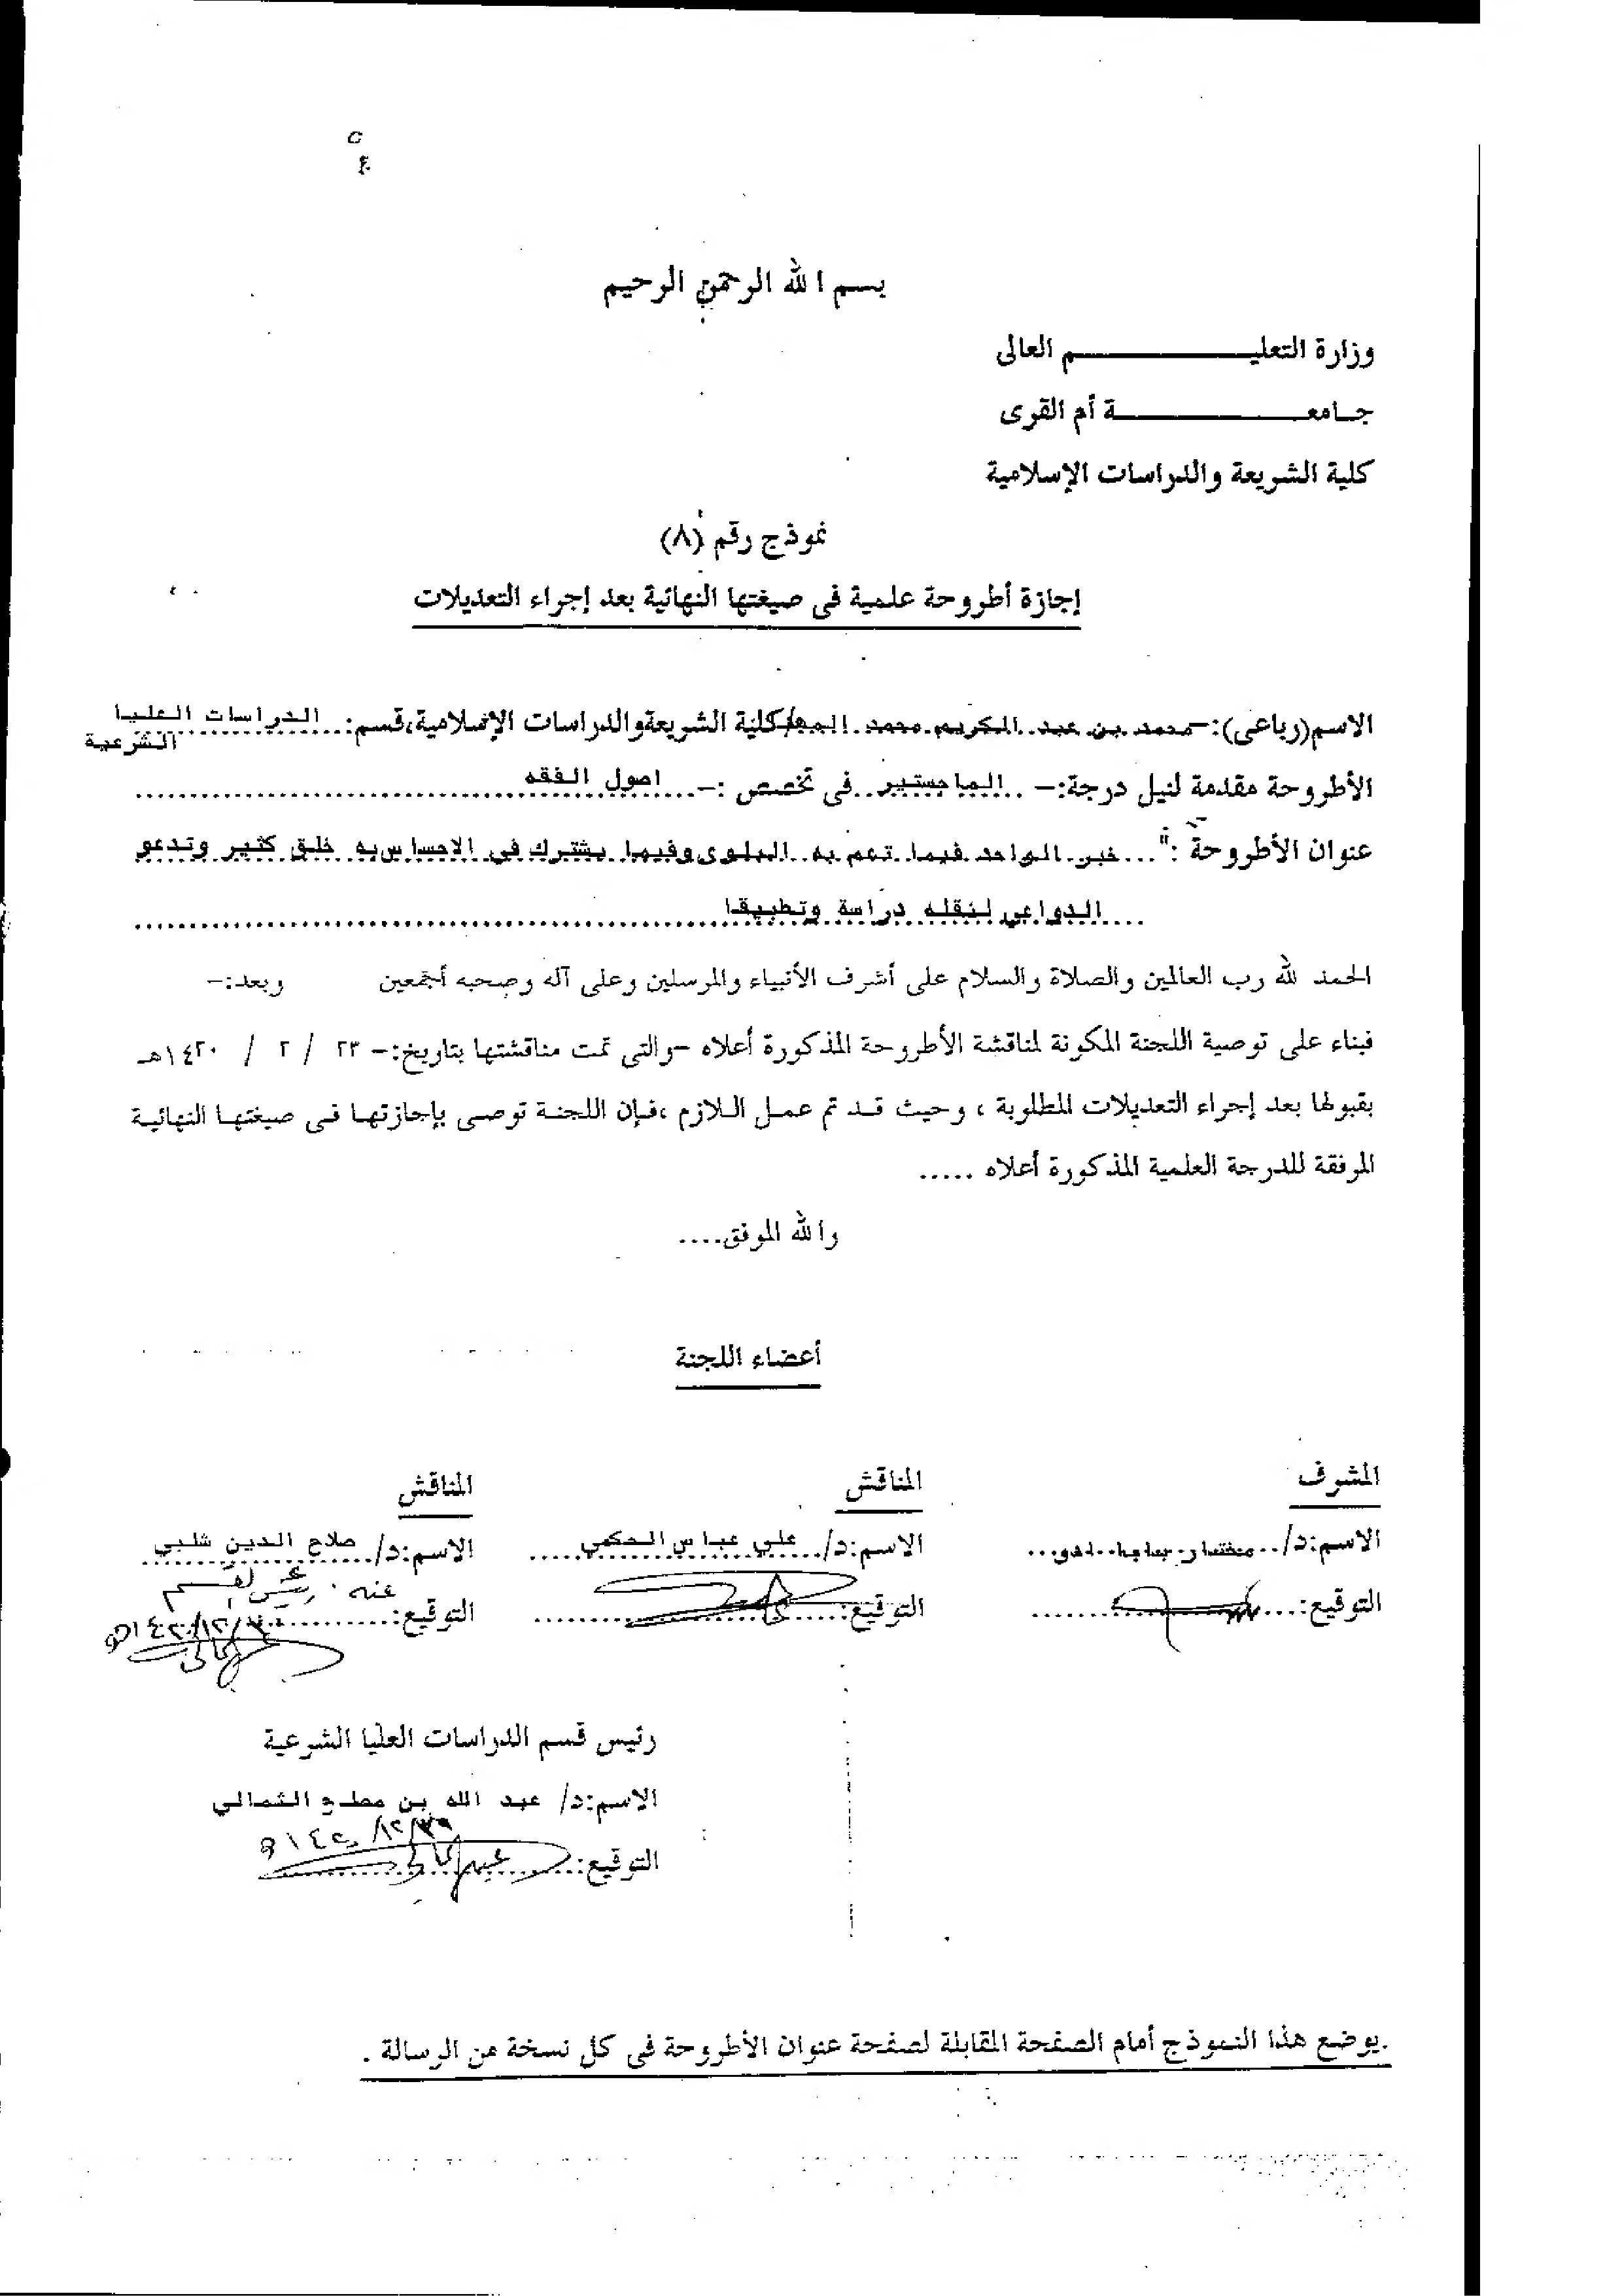 بسم الله الرحمن الرحيم
وزارة التعليم العالى
جامعة أم القرى
كلية الشريعة والدراسات الإسلامية
نموذج رقم (٨)
إجازة أطروحة علمية فى صيغتها النهائية بعد إجراء التعديلات
الاسم(رباعى):- محمد بن عبد الكريم محمد كلية الشريعة والدراسات الإسلامية، قسم: الدراسات العليا
الشرعية
الأطروحة مقدمة لنيل درجة:- .. الماجستير..فى تخصص :-....اصول الفقه
عنوان الأطروحة :"... خبر الواحد فيما تعم به البلوى وفيما يشترك فى الاحساس به خلق كثير وتدعو
....الدواعى لنقله دراسة وتطبيقا
الحمد لله رب العالمين والصلاة والسلام على أشرف الأنبياء والمرسلين وعلى آله وصحبه أجمعين وبعد:-
فبناء على توصية اللجنة المكونة لمناقشة الأطروحة المذكورة أعلاه -والتى تمت مناقشتها بتاريخ:- ٢٣ / ٢ / ١٤٢٠هـ
بقبولها بعد إجراء التعديلات المطلوبة ، وحيث قد تم عمل اللازم ،فإن اللجنة توصى بإجازتها فى صيغتها النهائية
المرفقة للدرجة العلمية المذكورة أعلاه .....
والله الموفق....
أعضاء اللجنة
المشرف المناقش المناقش
الاسم:د/.. مختار بابا آدو... الاسم:د/.. علي عباس الحكمي ..... الاسم:د/ صلاح الدين شلبي
عنه رئيس القسم
التوقيع:.... التوقيع:.... التوقيع:....
١٤٢٠/١٢/٢٠هـ
رئيس قسم الدراسات العليا الشرعية
الاسم:د/ عبد الله بن مصلح الثمالي
التوقيع:....
.يوضع هذا النموذج أمام الصفحة المقابلة لصفحة عنوان الأطروحة فى كل نسخة من الرسالة .